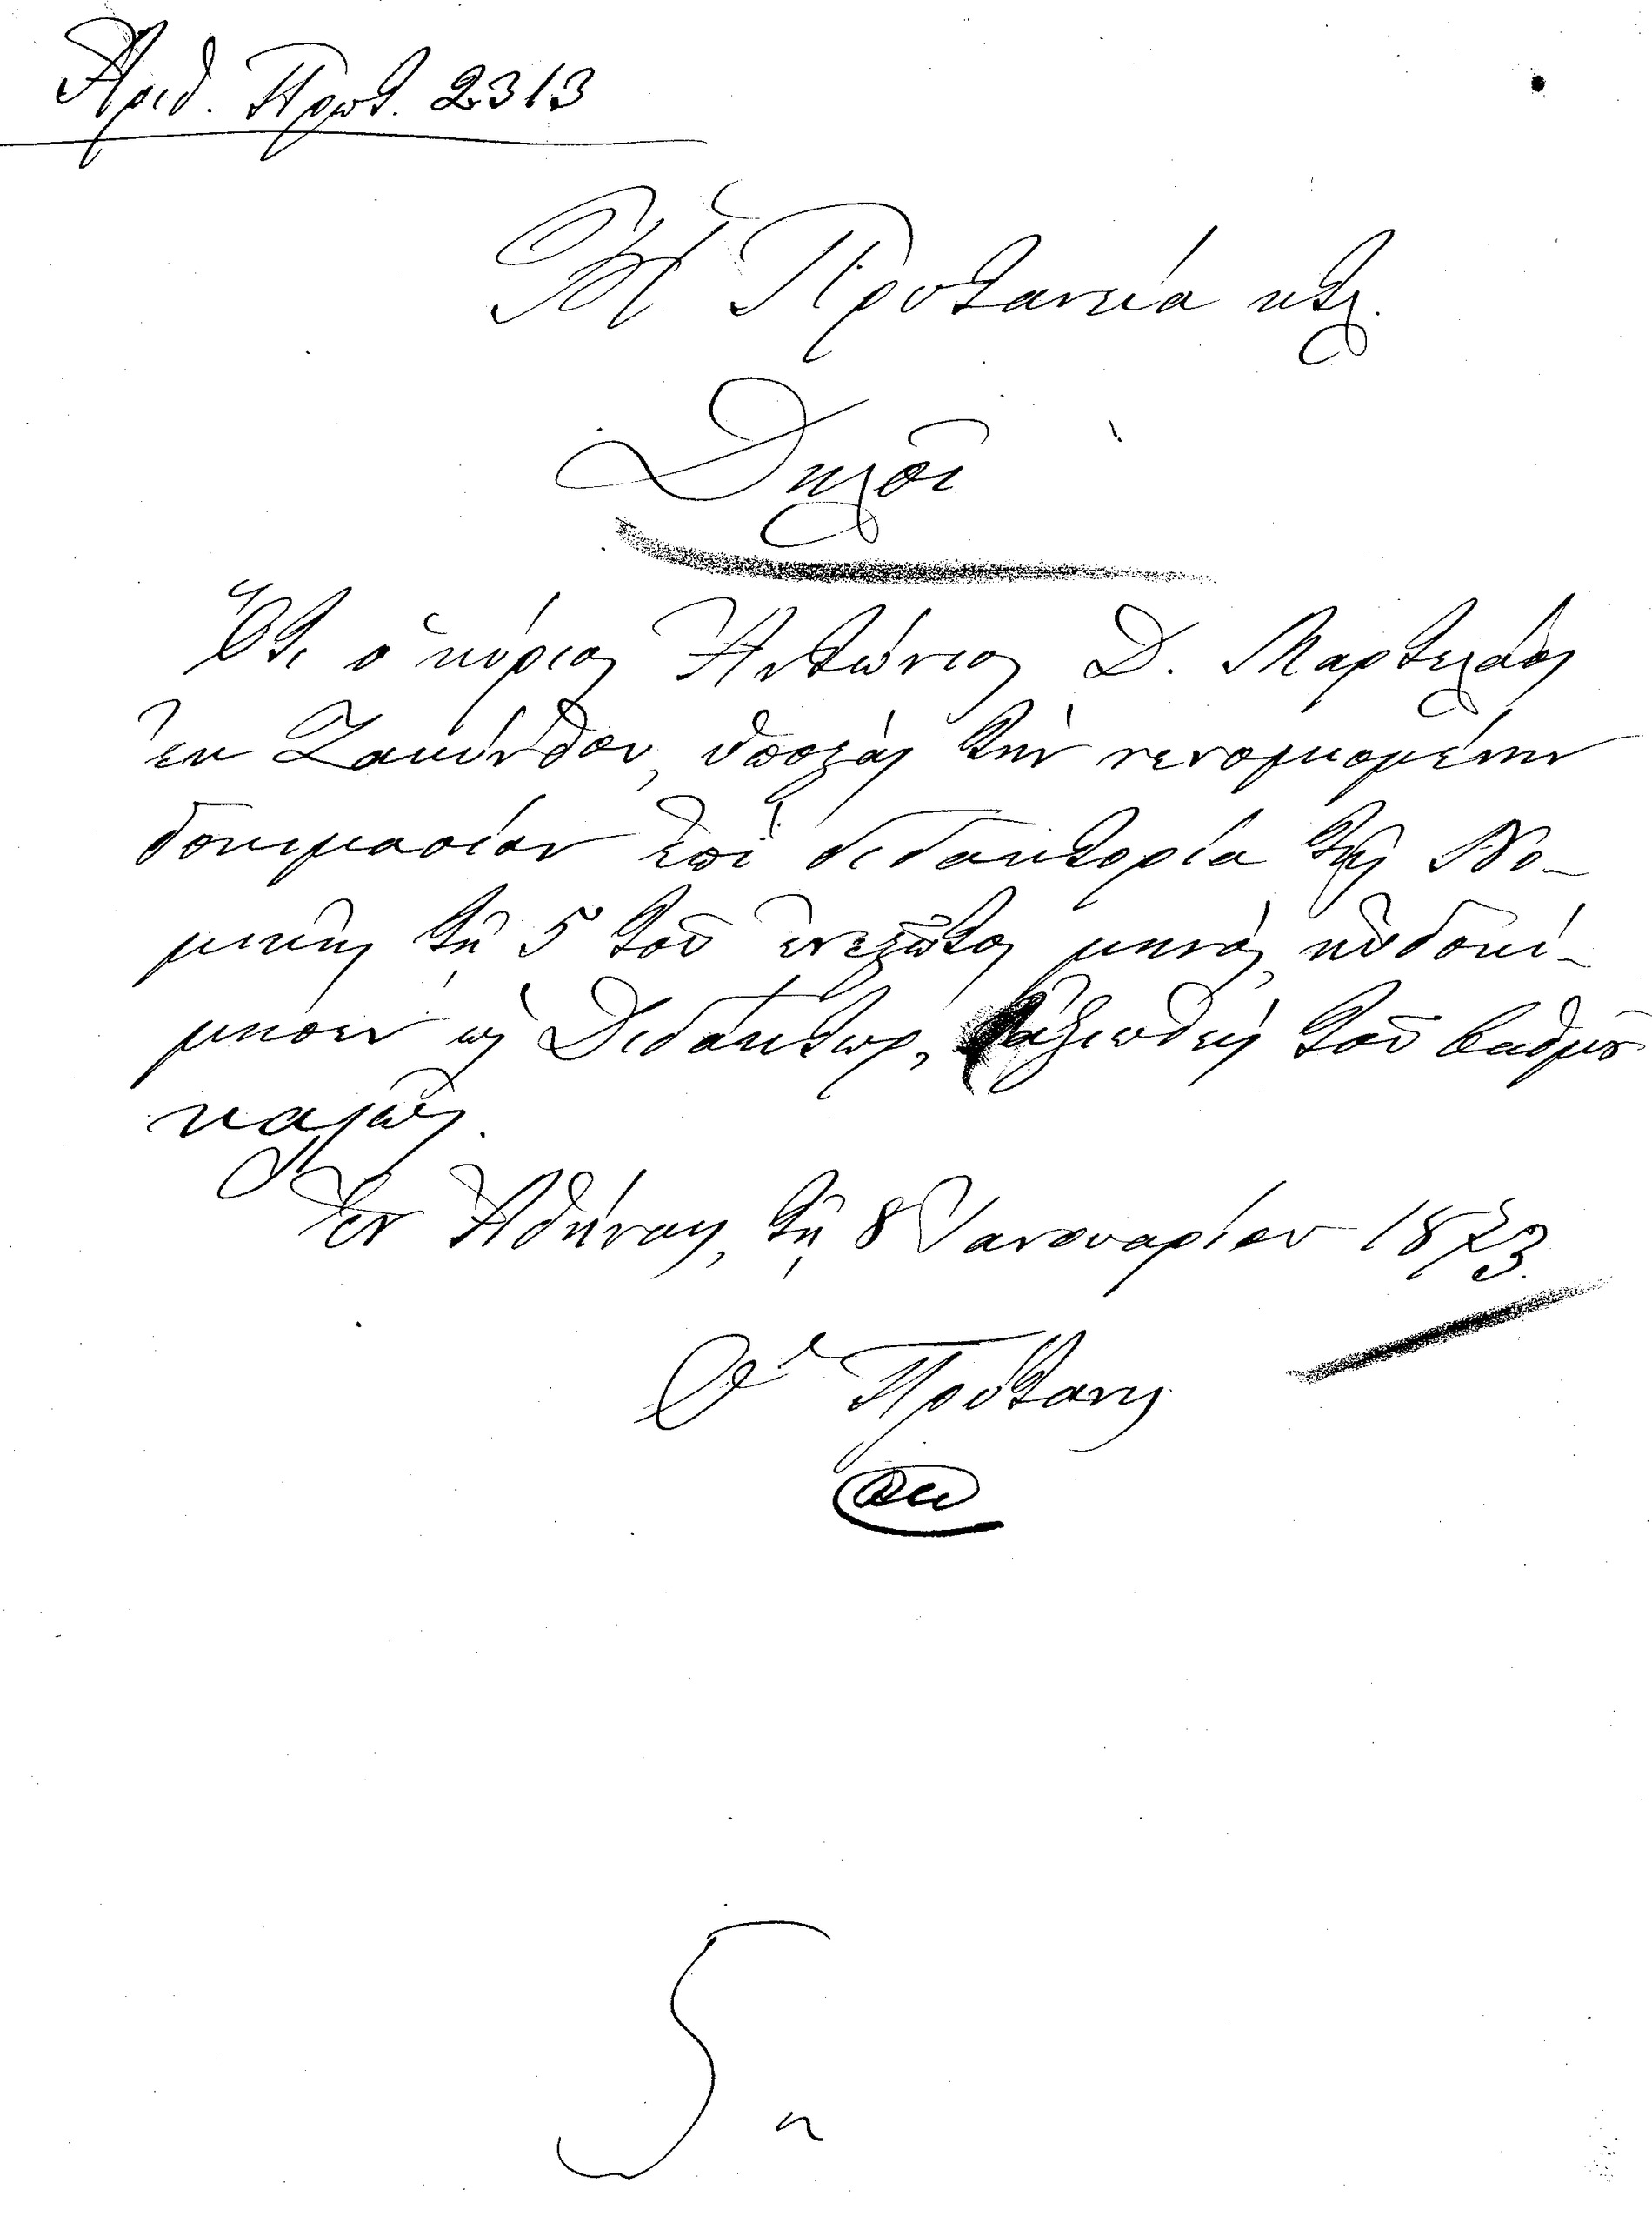 Ἀριθ. Πρωτ. 2313
Ἡ Πρυτανεία κτλ.
Δηλοῖ
Ὅτι ὁ κύριος Ἀντώνιος Δ. Μαρτελάος
ἐκ Ζακύνθου, ὑποστὰς τὴν νενομισμένην
δοκιμασίαν ἐπὶ διδακτορίᾳ τῆς Νο-
μικῆς τῇ 5 τοῦ ἐνεστῶτος μηνός, ηὐδοκί-
μησεν ὡς Διδάκτωρ, ἀξιωθεὶς τοῦ βαθμοῦ
καλῶς.
Ἐν Ἀθήναις, τῇ 8 Ἰανουαρίου 1873.
Ὁ Πρύτανις